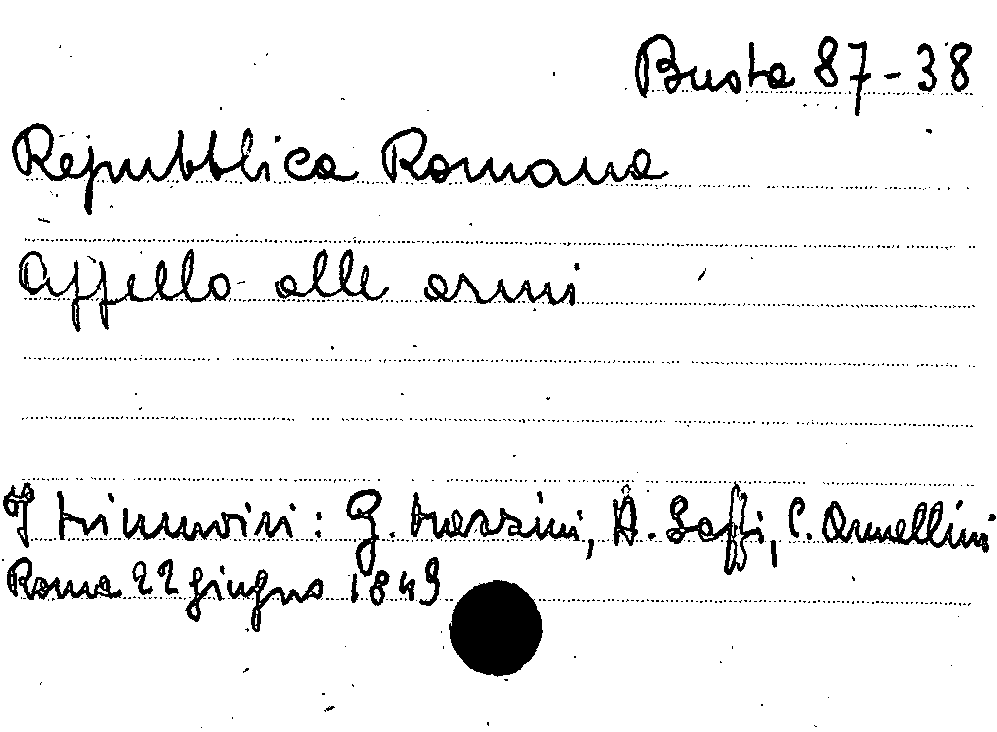 Busta 87-38
Repubblica Romana
Appello alle armi
I triumviri: G. Mazzini, A. Saffi, C. Armellini
Roma 22 giugno 1849